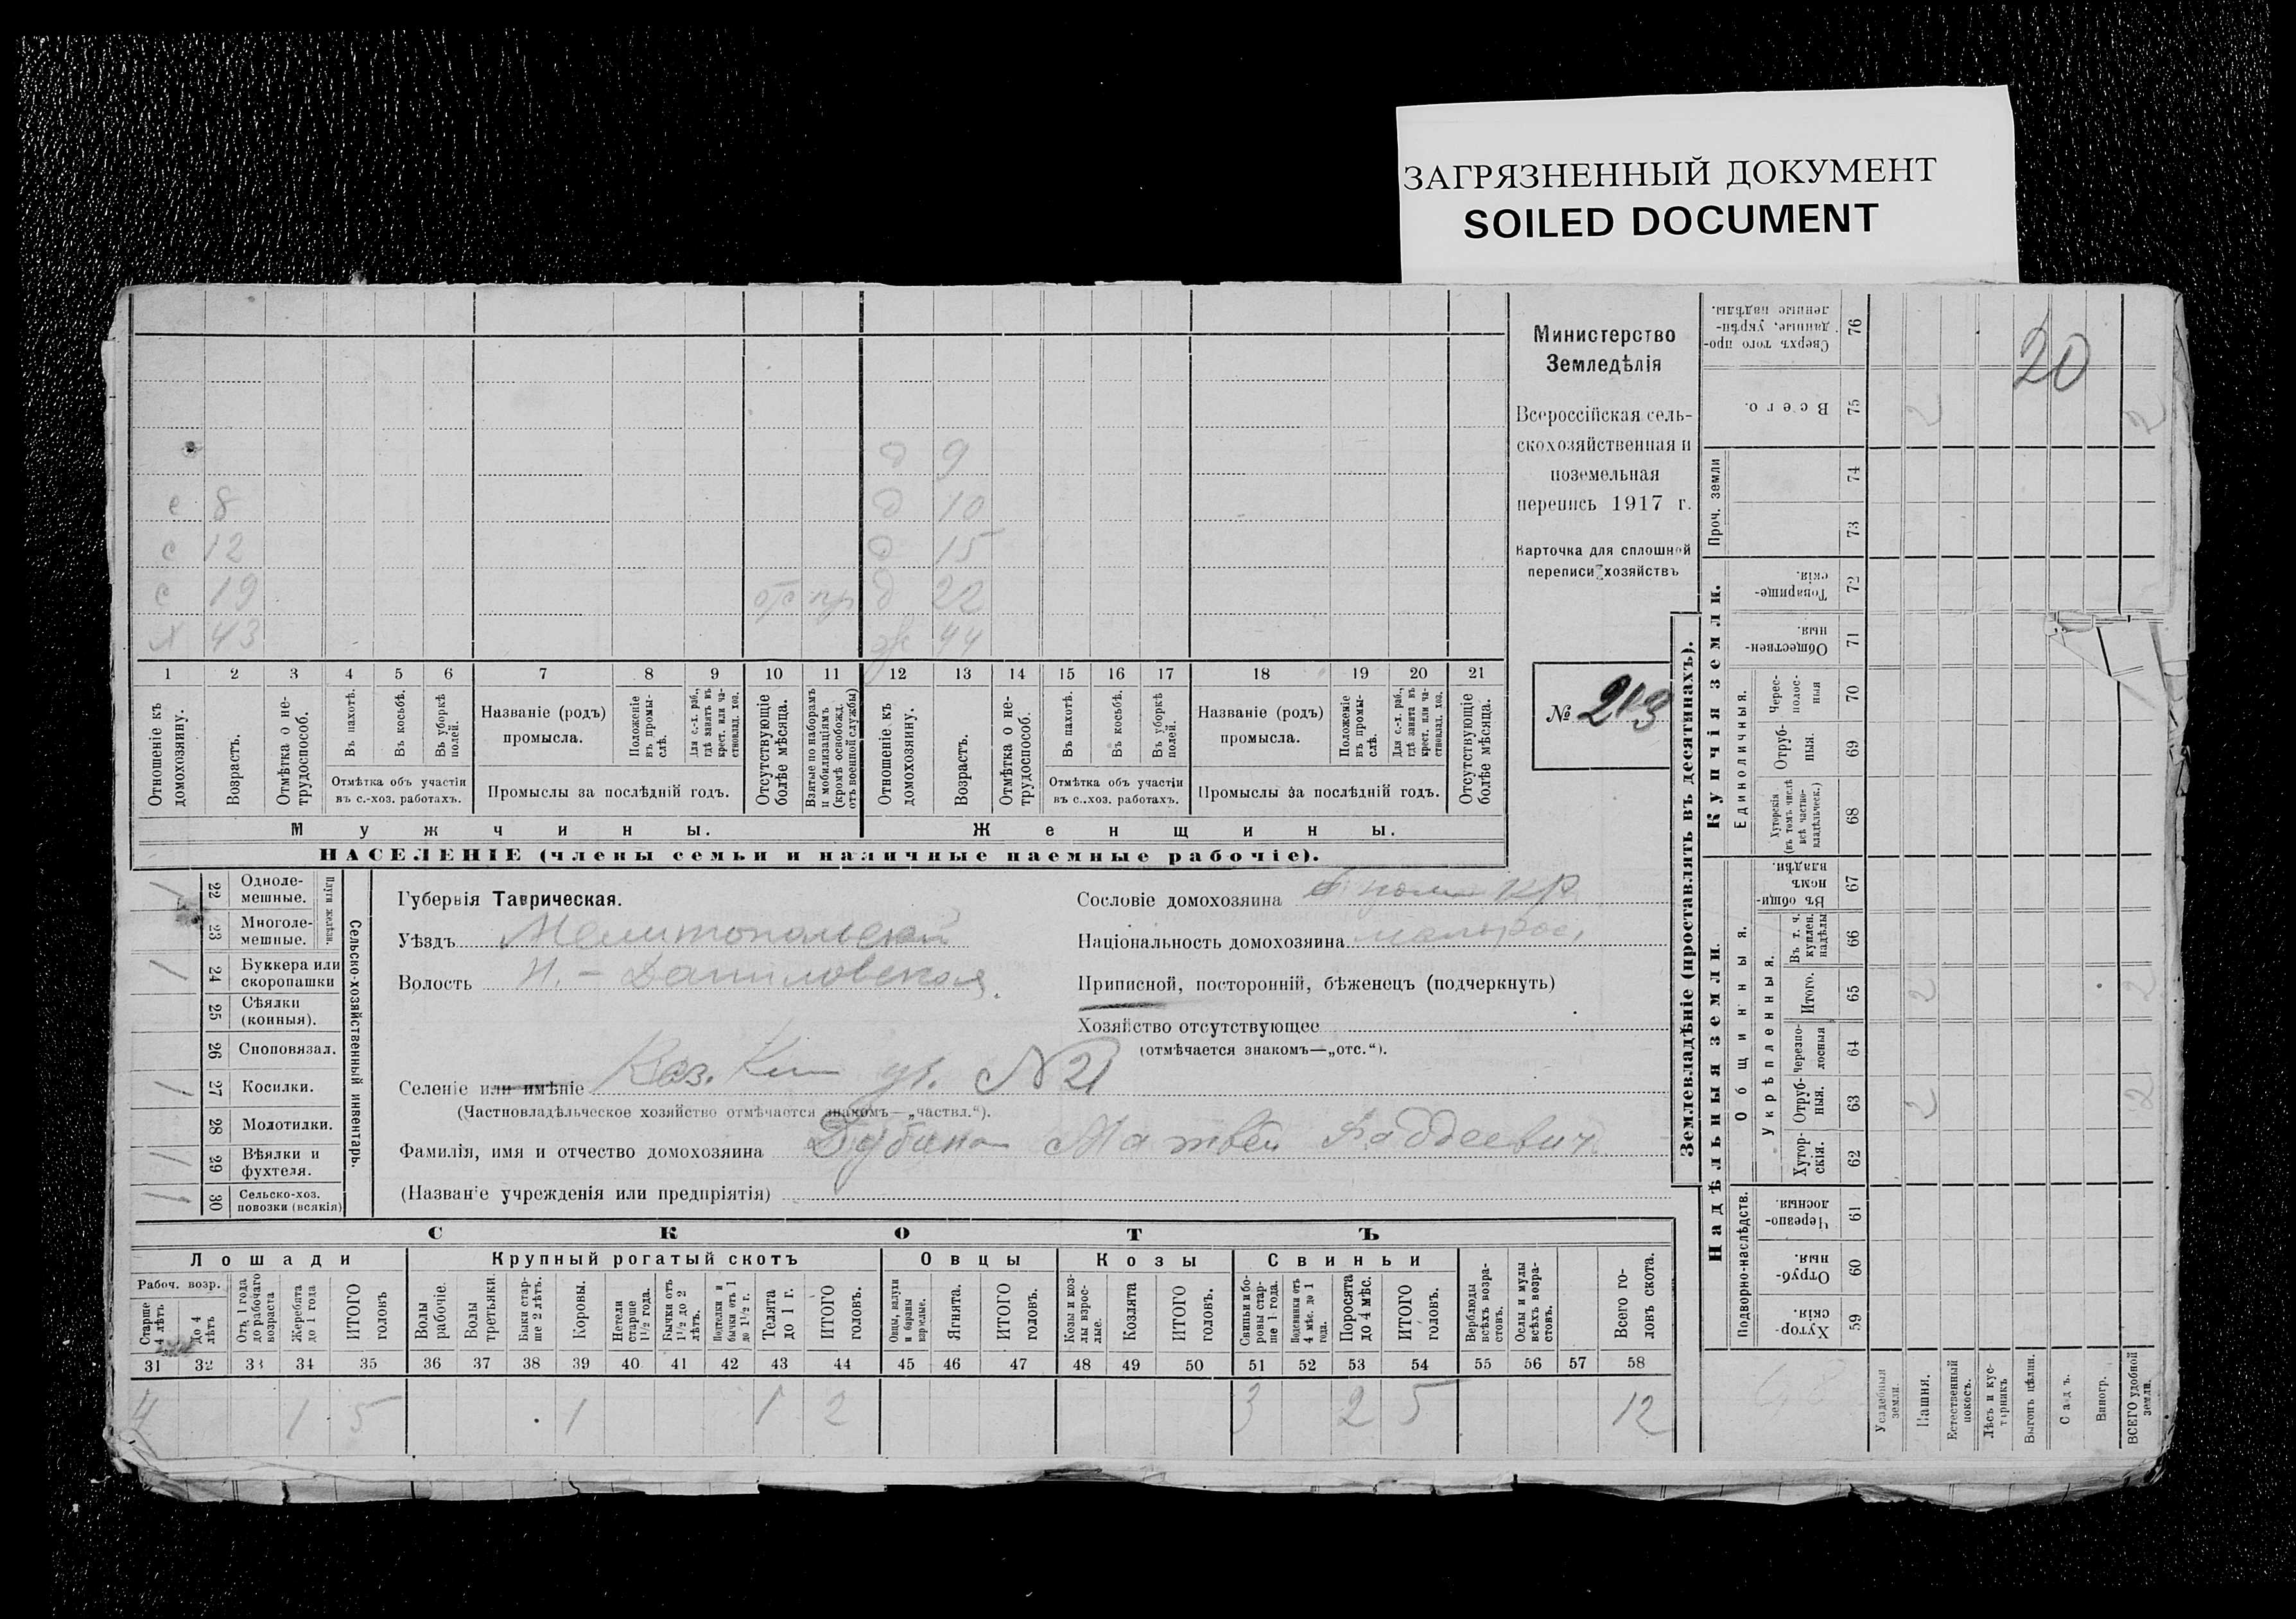 ЗАГРЯЗНЕННЫЙ ДОКУМЕНТ
SOILED DOCUMENT
20
Министерство
Земледѣлія
Всероссійская сель-
скохозяйственная и
поземельная
перепись 1917 г.
Карточка для сплошной
переписи хозяйствъ
№ 213
д 9
с 8 д 10
с 12 д 15
с 19 отс д 22
х 43 ж 44
1 2 3 4 5 6 7 8 9 10 11 12 13 14 15 16 17 18 19 20 21
Отношеніе къ домохозяину.
Возрастъ.
Отмѣтка о не-трудоспособ.
Въ пахотѣ.
Въ косьбѣ.
Въ уборкѣ полей.
Отмѣтка объ участіи
въ с.-хоз. работахъ.
Названіе (родъ)
промысла.
Положеніе въ промы-слѣ.
Для с.-х. раб., гдѣ занятъ въ крест. или ча-стновлад. хоз.
Промыслы за послѣдній годъ.
Отсутствующіе болѣе мѣсяца.
Взятые по наборамъ и мобилизаціямъ (кромѣ освобожд. отъ военной службы)
Отношеніе къ домохозяину.
Возрастъ.
Отмѣтка о не-трудоспособ.
Въ пахотѣ.
Въ косьбѣ.
Въ уборкѣ полей.
Отмѣтка объ участіи
въ с..хоз. работахъ.
Названіе (родъ)
промысла.
Положеніе въ промы-слѣ.
Для с.-х. раб., гдѣ занята въ крест. или ча-стновлад. хоз.
Промыслы за послѣдній годъ.
Отсутствующіе болѣе мѣсяца.
Мужчины. Женщины.
НАСЕЛЕНІЕ (члены семьи и наличные наемные рабочіе).
Сельско-хозяйственный инвентарь.
Плуги желѣзн.
/ 22 Одноле-мешные.
23 Многоле-мешные.
/ 24 Буккера или скоропашки
25 Сѣялки (конныя).
26 Сноповязал.
/ 27 Косилки.
28 Молотилки.
/ 29 Вѣялки и фухтеля.
30 Сельско-хоз. повозки (всякія)
Губернія Таврическая.
Уѣздъ Мелитопольскій
Волость Н.-Даниловская.
Селеніе или имѣніе Каз. уч. № 21
(Частновладѣльческое хозяйство отмѣчается знакомъ—„частвл.“).
Фамилія, имя и отчество домохозяина Матвѣй Фаддеевич
(Названіе учрежденія или предпріятія)
Сословіе домохозяина кр
Національность домохозяина малорос.
Приписной, посторонній, бѣженецъ (подчеркнуть)
Хозяйство отсутствующее
(отмѣчается знакомъ—„отс.“).
СКОТЪ
Лошади Крупный рогатый скотъ Овцы Козы Свиньи
Рабоч. возр.
Старше 4 лѣтъ
до 4 лѣтъ
Отъ 1 года до рабочаго возраста
Жеребята до 1 года
ИТОГО головъ
Волы рабочіе.
Волы третьяки.
Быки стар-ше 2 лѣтъ.
Коровы.
Нетели старше 1½ года.
Бычки отъ 1½ до 2 лѣтъ.
Подтелки и бычки отъ 1 до 1½ г.
Телята до 1 г.
ИТОГО головъ.
Овцы, валухи и бараны взрослые.
Ягнята.
ИТОГО головъ.
Козы и коз-лы взрос-лые.
Козлята
ИТОГО головъ.
Свиньи и бо-ровы стар-ше 1 года.
Подсвинки отъ 4 мѣс. до 1 года.
Поросята до 4 мѣс.
ИТОГО головъ.
Верблюды всѣхъ возра-стовъ.
Ослы и мулы всѣхъ возра-стовъ.
Всего го-ловъ скота.
31 32 33 34 35 36 37 38 39 40 41 42 43 44 45 46 47 48 49 50 51 52 53 54 55 56 57 58
4 1 5 1 1 2 3 2 5 12
Землевладѣніе (проставлять въ десятинахъ).
Купчія земли.
Надѣльныя земли.
Сверхъ того про-данные, укрѣп-ленные надѣлы. 76
Всего. 75 2 2
Проч. земли
74
73
Товарище-скія. 72
Обществен-ныя. 71
Единоличныя.
Черес-полос-ныя 70
Отруб-ныя. 69
Хуторскія (въ томъ числѣ всѣ частно-владѣльческ.) 68
Общинныя.
Въ общин-номъ владѣн. 67
Укрѣпленныя.
Въ т. ч. куплен. надѣлы 66
Итого. 65 2 2
Черезпо-лосныя 64
Отруб-ныя. 63 2 2
Хутор-скія. 62
Подворно-наслѣдств.
Черезпо-лосныя. 61
Отруб-ныя. 60
Хутор-скія. 59
Усадебныя земли.
Пашня.
Естественный покосъ.
Лѣсъ и кус-тарникъ
Выгонъ цѣлин.
Садъ.
Виногр.
ВСЕГО удобной земли.